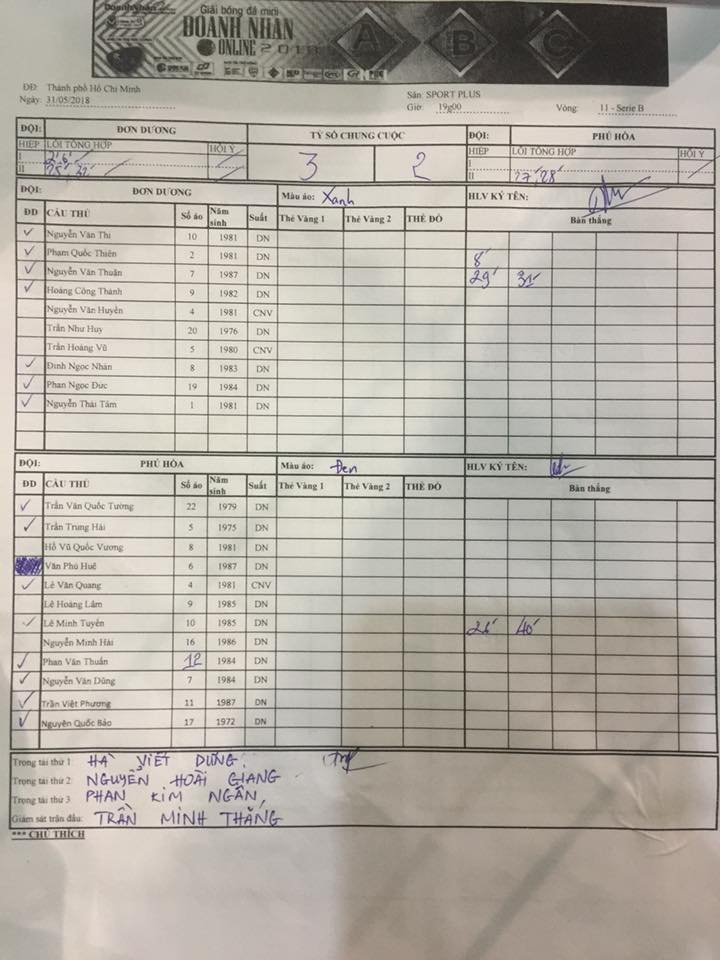 DoanhNhân
Giải bóng đá mini
DOANH NHÂN
ONLINE 2018
A B C
ĐĐ: Thành phố Hồ Chí Minh Sân: SPORT PLUS
Ngày: 31/05/2018 Giờ: 19g00 Vòng: 11 - Serie B
ĐỘI: ĐƠN DƯƠNG TỶ SỐ CHUNG CUỘC ĐỘI: PHÚ HÒA
HIỆP LỖI TỔNG HỢP HỘI Ý 3 2 HIỆP LỖI TỔNG HỢP HỘI Ý
I 2' 6' I
II 25' 32' II 27' 28'
ĐỘI: ĐƠN DƯƠNG Màu áo: Xanh HLV KÝ TÊN:
ĐD CẦU THỦ Số áo Năm sinh Suất Thẻ Vàng 1 Thẻ Vàng 2 THẺ ĐỎ Bàn thắng
✓ Nguyễn Văn Thi 10 1981 DN
✓ Phạm Quốc Thiên 2 1981 DN 8'
✓ Nguyễn Văn Thuân 7 1987 DN 29' 31'
✓ Hoàng Công Thành 9 1982 DN
Nguyễn Văn Huyền 4 1981 CNV
Trần Như Huy 20 1976 DN
Trần Hoàng Vũ 5 1980 CNV
✓ Đinh Ngọc Nhân 8 1983 DN
✓ Phan Ngọc Đức 19 1984 DN
✓ Nguyễn Thái Tâm 1 1981 DN
ĐỘI: PHÚ HÒA Màu áo: Đen HLV KÝ TÊN:
ĐD CẦU THỦ Số áo Năm sinh Suất Thẻ Vàng 1 Thẻ Vàng 2 THẺ ĐỎ Bàn thắng
✓ Trần Văn Quốc Tường 22 1979 DN
✓ Trần Trung Hải 5 1975 DN
Hồ Vũ Quốc Vương 8 1981 DN
Văn Phú Huê 6 1987 DN
✓ Lê Văn Quang 4 1981 CNV
Lê Hoàng Lâm 9 1985 DN
✓ Lê Minh Tuyển 10 1985 DN 26' 40'
Nguyễn Minh Hải 16 1986 DN
✓ Phan Văn Thuấn 12 1984 DN
✓ Nguyễn Văn Dũng 7 1984 DN
✓ Trần Việt Phương 11 1987 DN
✓ Nguyễn Quốc Bảo 17 1972 DN
Trọng tài thứ 1: HÀ VIẾT DŨNG
Trọng tài thứ 2: NGUYỄN HOÀI GIANG
Trọng tài thứ 3 PHAN KIM NGÂN
Giám sát trận đấu: TRẦN MINH THẮNG
*** CHÚ THÍCH